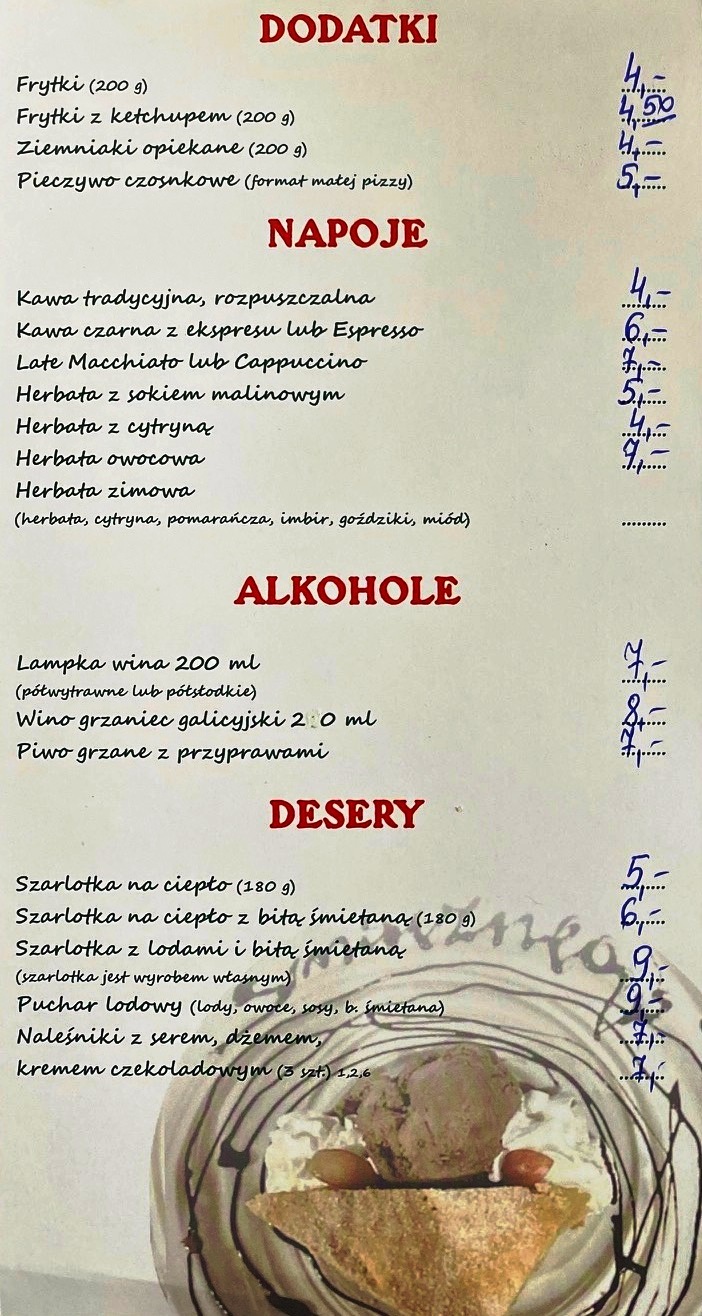 DODATKI
Frytki (200 g) 4,-
Frytki z ketchupem (200 g) 4,50
Ziemniaki opiekane (200 g) 4,-
Pieczywo czosnkowe (format małej pizzy) 5,-
NAPOJE
Kawa tradycyjna, rozpuszczalna 4,-
Kawa czarna z ekspresu lub Espresso 6,-
Late Macchiato lub Cappuccino 7,-
Herbata z sokiem malinowym 5,-
Herbata z cytryną 4,-
Herbata owocowa
Herbata zimowa
(herbata, cytryna, pomarańcza, imbir, goździki, miód) .........
ALKOHOLE
Lampka wina 200 ml 7,-
(półwytrawne lub półsłodkie)
Wino grzaniec galicyjski 2 0 ml 8,-
Piwo grzane z przyprawami 7,-
DESERY
Szarlotka na ciepło (180 g) 5,-
Szarlotka na ciepło z bitą śmietaną (180 g) 6,-
Szarlotka z lodami i bitą śmietaną 9,-
(szarlotka jest wyrobem własnym)
Puchar lodowy (lody, owoce, sosy, b. śmietana) 9,-
Naleśniki z serem, dżemem, 7,-
kremem czekoladowym (3 szt.) 1,2,6 7,-